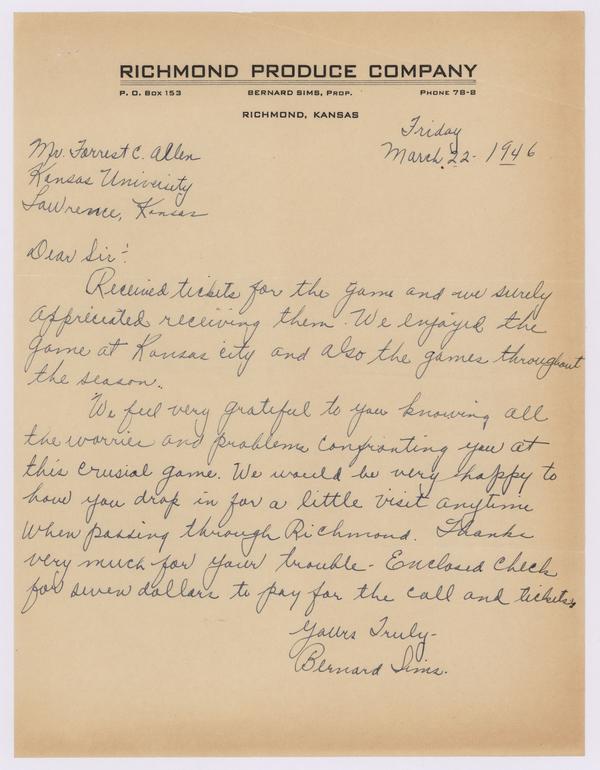 RICHMOND PRODUCE COMPANY
P. O. BOX 153 BERNARD SIMS, PROP. PHONE 78-8
RICHMOND, KANSAS
Friday
March 22 - 1946
Mr. Forrest C. Allen
Kansas University
Lawrence, Kansas
Dear Sir:
Received tickets for the game and we surely
appreciated receiving them. We enjoyed the
game at Kansas city and also the games throughout
the season.
We feel very grateful to you knowing all
the worries and problems confronting you at
this crusial game. We would be very happy to
have you drop in for a little visit anytime
when passing through Richmond. Thanks
very much for your trouble - Enclosed check
for seven dollars to pay for the call and tickets.
Yours Truly -
Bernard Sims.